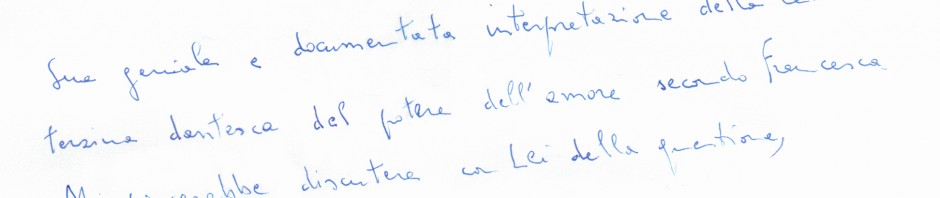 Sua geniale e documentata interpretazione della
terzina dantesca del potere dell'amore secondo Francesca
discutere con Lei della questione,